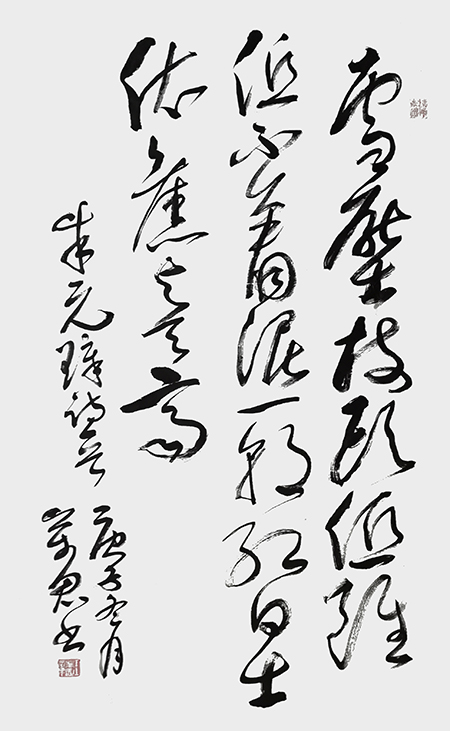 雪壓枝頭低雖
低不着泥一朝紅日出
依舊与天齊
朱元璋詩
庚子冬月
書